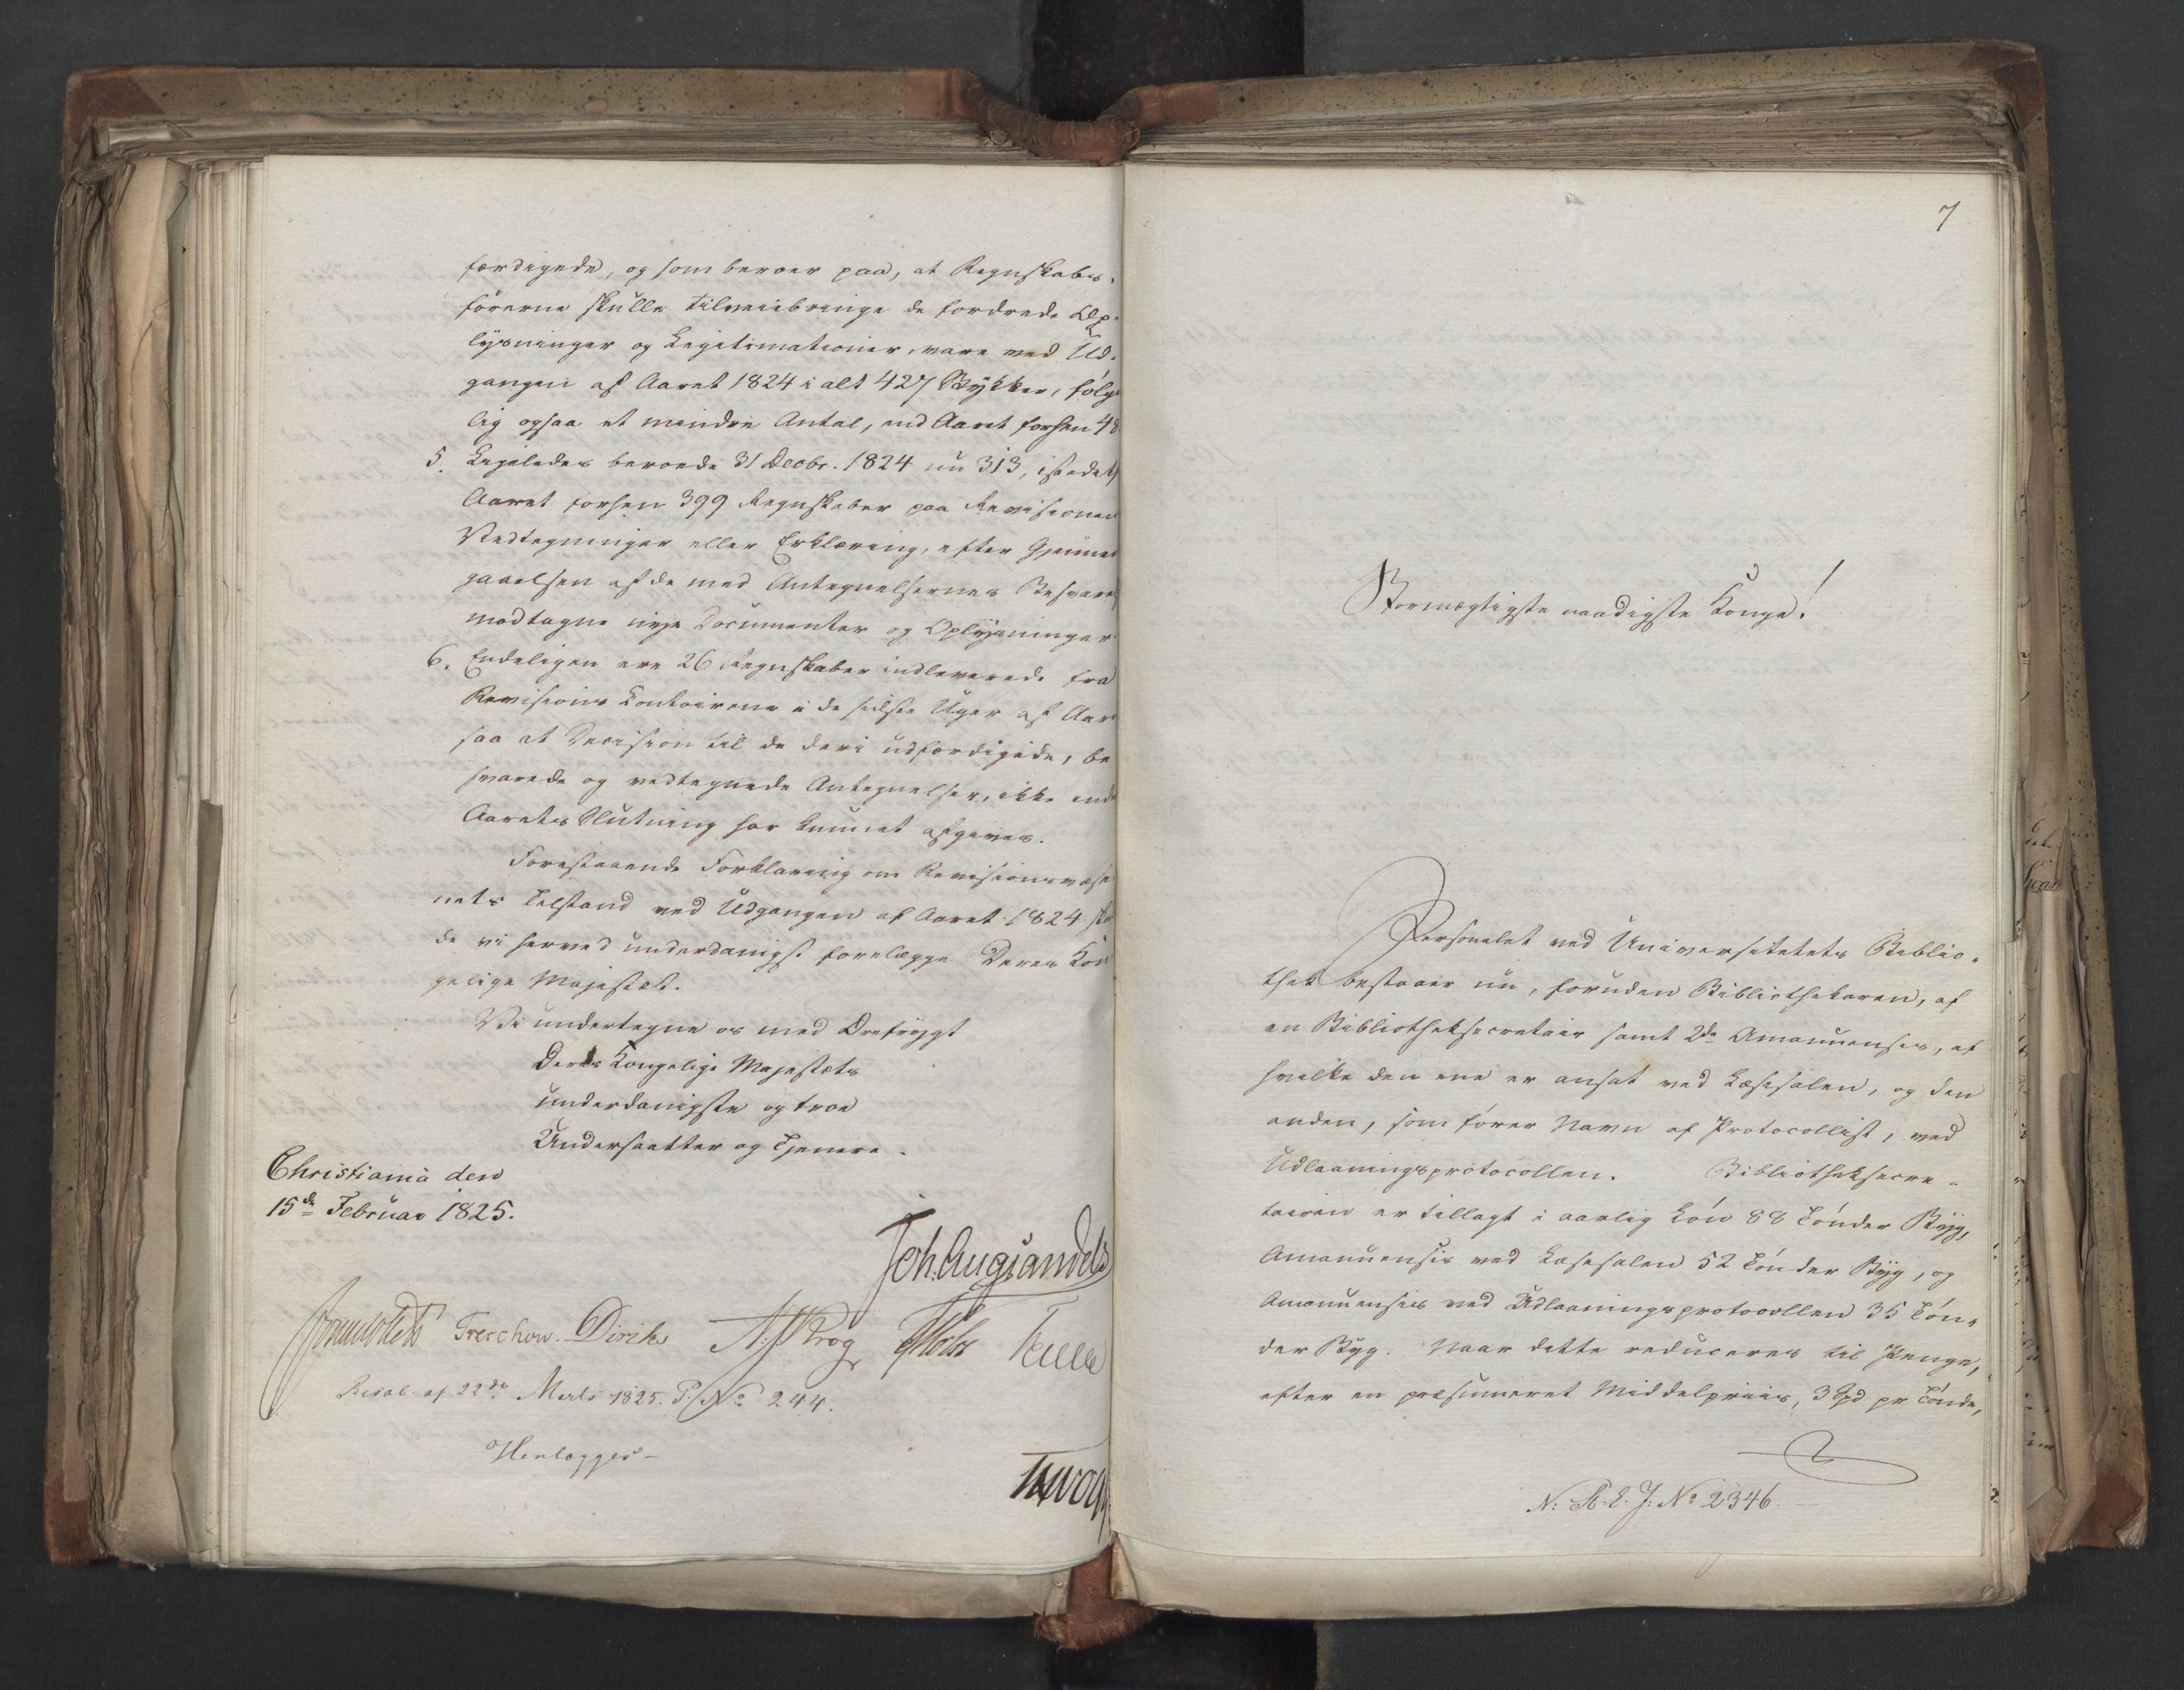 færdigede, og som beroer paa, at Regnskabs-
førerne skulle tilveiebringe de fordrede Op-
lysninger og Legitimationer, vare ved Ud-
gangen af Aaret 1824 i alt 427 Stykker, følg-
lig ogsaa et mindre Antal, end Aaret forhen 48
5. Ligeledes beroede 31 Decbr. 1824 nu 313, istedetf
Aaret forhen 399 Regnskaber paa Revisionen
Vedtegninger eller Erklæring, efter Gjennem
gaaelsen af de med Antegnelsernes Besvare
modtagne nye Documenter og Oplysninger
6. Endeligen ere 26 Regnskaber indleverede fra
Revisions Contoirene i de sidste Uger af Aar
saa at Decision til de deri udfærdigede, be
svarede og vedtegnede Antegnelser, ikke inde
Aarets Slutning har kunnet afgives.
Forestaaende Forklaring om Revisionsvæse
nets Tilstand ved Udgangen af Aaret 1824 skul
de vi herved underdanigst forelægge Deres Kon
gelige Majestæt.
Vi undertegne os med Ærefrygt
Deres Kongelige Majestæts
underdanigste og troe
Undersaatter og Tjenere.
Christiania den
15de Februar 1825.
Joh. Aug. Sandels
Sommerhielm Treschow. Diriks N. J. Krog J Holst Collett
Resol. af 22de Marts 1825. P. No 244.
Henlægges -
7
Stormægtigste naadigste Konge!
Personalet ved Universitetets Biblio-
thek bestaaer nu, foruden Bibliothekaren, af
en Bibliotheksecretair samt 2de Amanuenses, af
hvilke den ene er ansat ved Læsesalen, og den
anden, som fører Navn af Protocollist, ved
Udlaaningsprotocollen. Bibliotheksecre-
tairen er tillagt i aarlig Løn 88 Tønder Byg,
Amanuensis ved Læsesalen 52 Tønder Byg, og
Amanuensis ved Udlaaningsprotocollen 35 Tøn-
der Byg. Naar dette reduceres til Penge,
efter en præsumeret Middelpriis, 3 Spd pr Tønde,
N: R. L. J: No 2346.